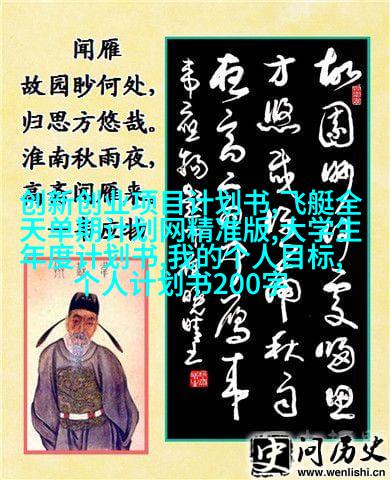 闻雁
故园眇何处,
归思方悠哉。
淮南秋雨夜,
高斋闻雁来。
创新创业项目计划书,飞艇全
天单期计划网精准版,大学生
年度计划书,我的个人目标,
个人计划书200字
故园眇何处归思
方悠哉淮南秋雨
夜高斋闻雁来
韦应物
问历史
www.wenlishi.com